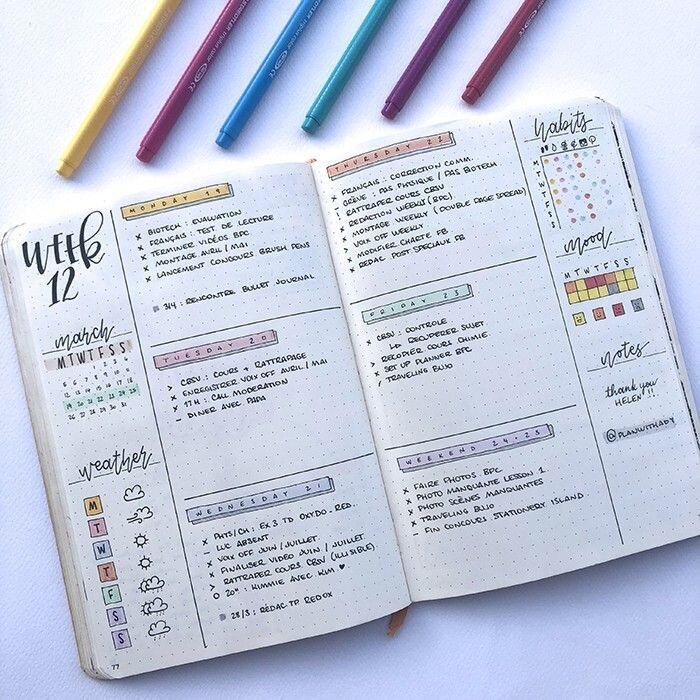 WEEK
12
march
M T W T F S S
1 2 3 4
5 6 7 8 9 10 11
12 13 14 15 16 17 18
19 20 21 22 23 24 25
26 27 28 29 30 31
weather
M
T
W
T
F
S
S
77
MONDAY 19
x BIOTECH : EVALUATION
x FRANÇAIS : TEST DE LECTURE
x TERMINER VIDÉOS BPC
x MONTAGE AVRIL / MAI
x LANCEMENT CONCOURS BRUSH PENS
3/4 : RENCONTRE BULLET JOURNAL
TUESDAY 20
> CBSV : COURS + RATTRAPAGE
x ENREGISTRER VOIX OFF AVRIL / MAI
x 17H : CALL MODERATION
– DINER AVEC PAPA
WEDNESDAY 21
x PHYS/CH : EX 3 TD OXYDO_RED.
– LUC ABSENT
x VOIX OFF JUIN / JUILLET
x FINALISER VIDÉO JUIN / JUILLET
> RATTRAPER COURS CBSV (ILLISIBLE)
O 20H : KIMMIE AVEC KIM ♥
28/3 : RÉDAC TP REDOX
THURSDAY 22
x FRANÇAIS : CORRECTION COMM.
– GRÈVE : PAS PHYSIQUE / PAS BIOTECH
RATTRAPER COURS CBSV
x REDACTION WEEKLY (BPC)
x MONTAGE WEEKLY (DOUBLE PAGE SPREAD)
x VOIX OFF WEEKLY
x MODIFIER CHARTE FB
x REDAC POST SPECIAUX FB
FRIDAY 23
x CBSV : CONTROLE
↳ RECUPERER SUJET
> RECOPIER COURS CHIMIE
x SET UP PLANNER BPC
/ TRAVELING BUJO
WEEKEND 24 • 25
x FAIRE PHOTOS BPC
x PHOTO MANQUANTE LESSON 1
x PHOTO SCÈNES MANQUANTES
x TRAVELING BUJO
– FIN CONCOURS STATIONERY ISLAND
habits
M
T
W
T
F
S
S
mood
M T W T F S S
notes
thank you
HELEN !!
@PLANWITHADY